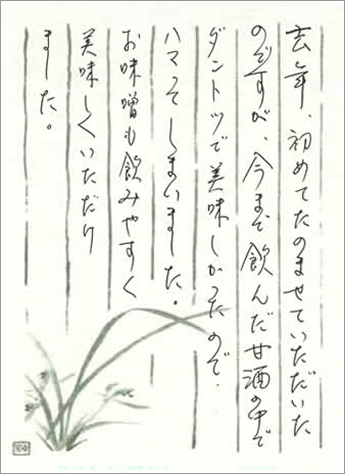 去年、初めてたのませていただいた
のですが、今まで飲んだ甘酒の中で
ダントツで美味しかったので、
ハマってしまいました。
お味噌も飲みやすく
美味しくいただけ
ました。